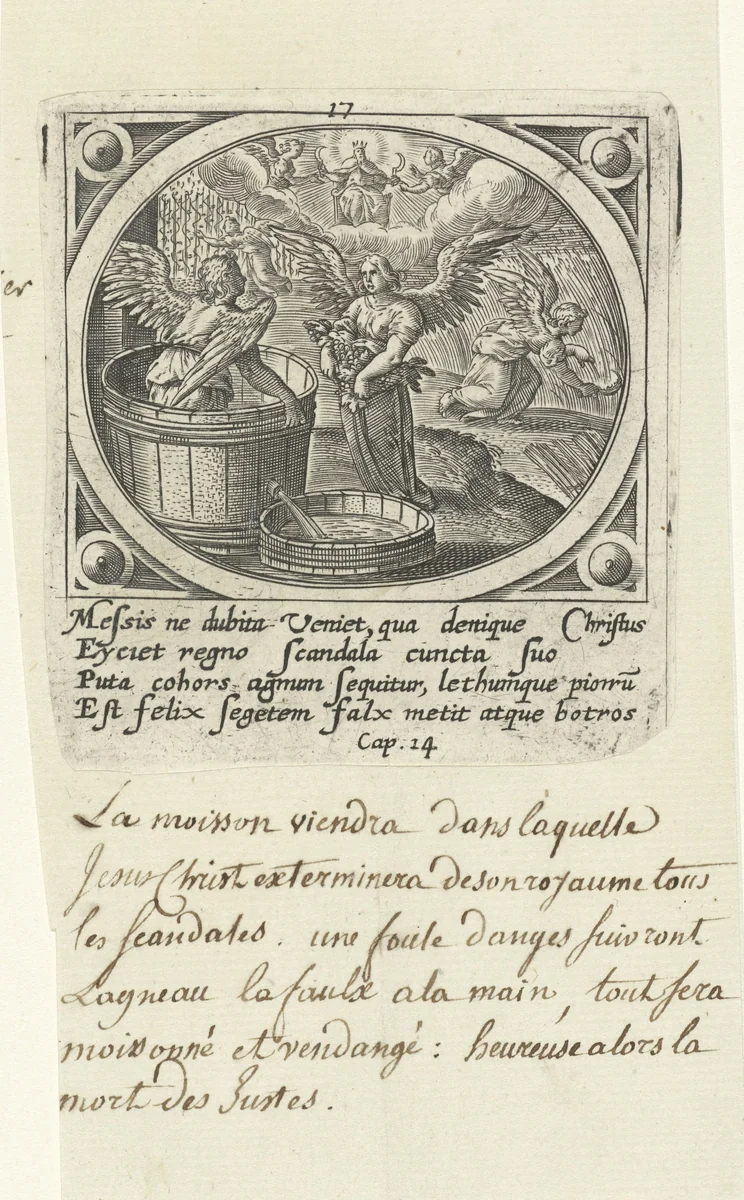 17
ier
Meſsis ne dubita Veniet, qua denique Chriſtus
Eyciet regno ſcandala cuncta ſuo
Puta cohors agnum ſequitur, lethumque piorũ
Eſt felix ſegetem falx metit atque botros
Cap. 14
La moisson viendra dans laquelle
Jesus Christ exterminera de son royaume tous
les ſcandales. une foule danges ſuivront
Lagneau la faulx a la main, tout ſera
moissonné et vendangé : heureuse alors la
mort des Justes.